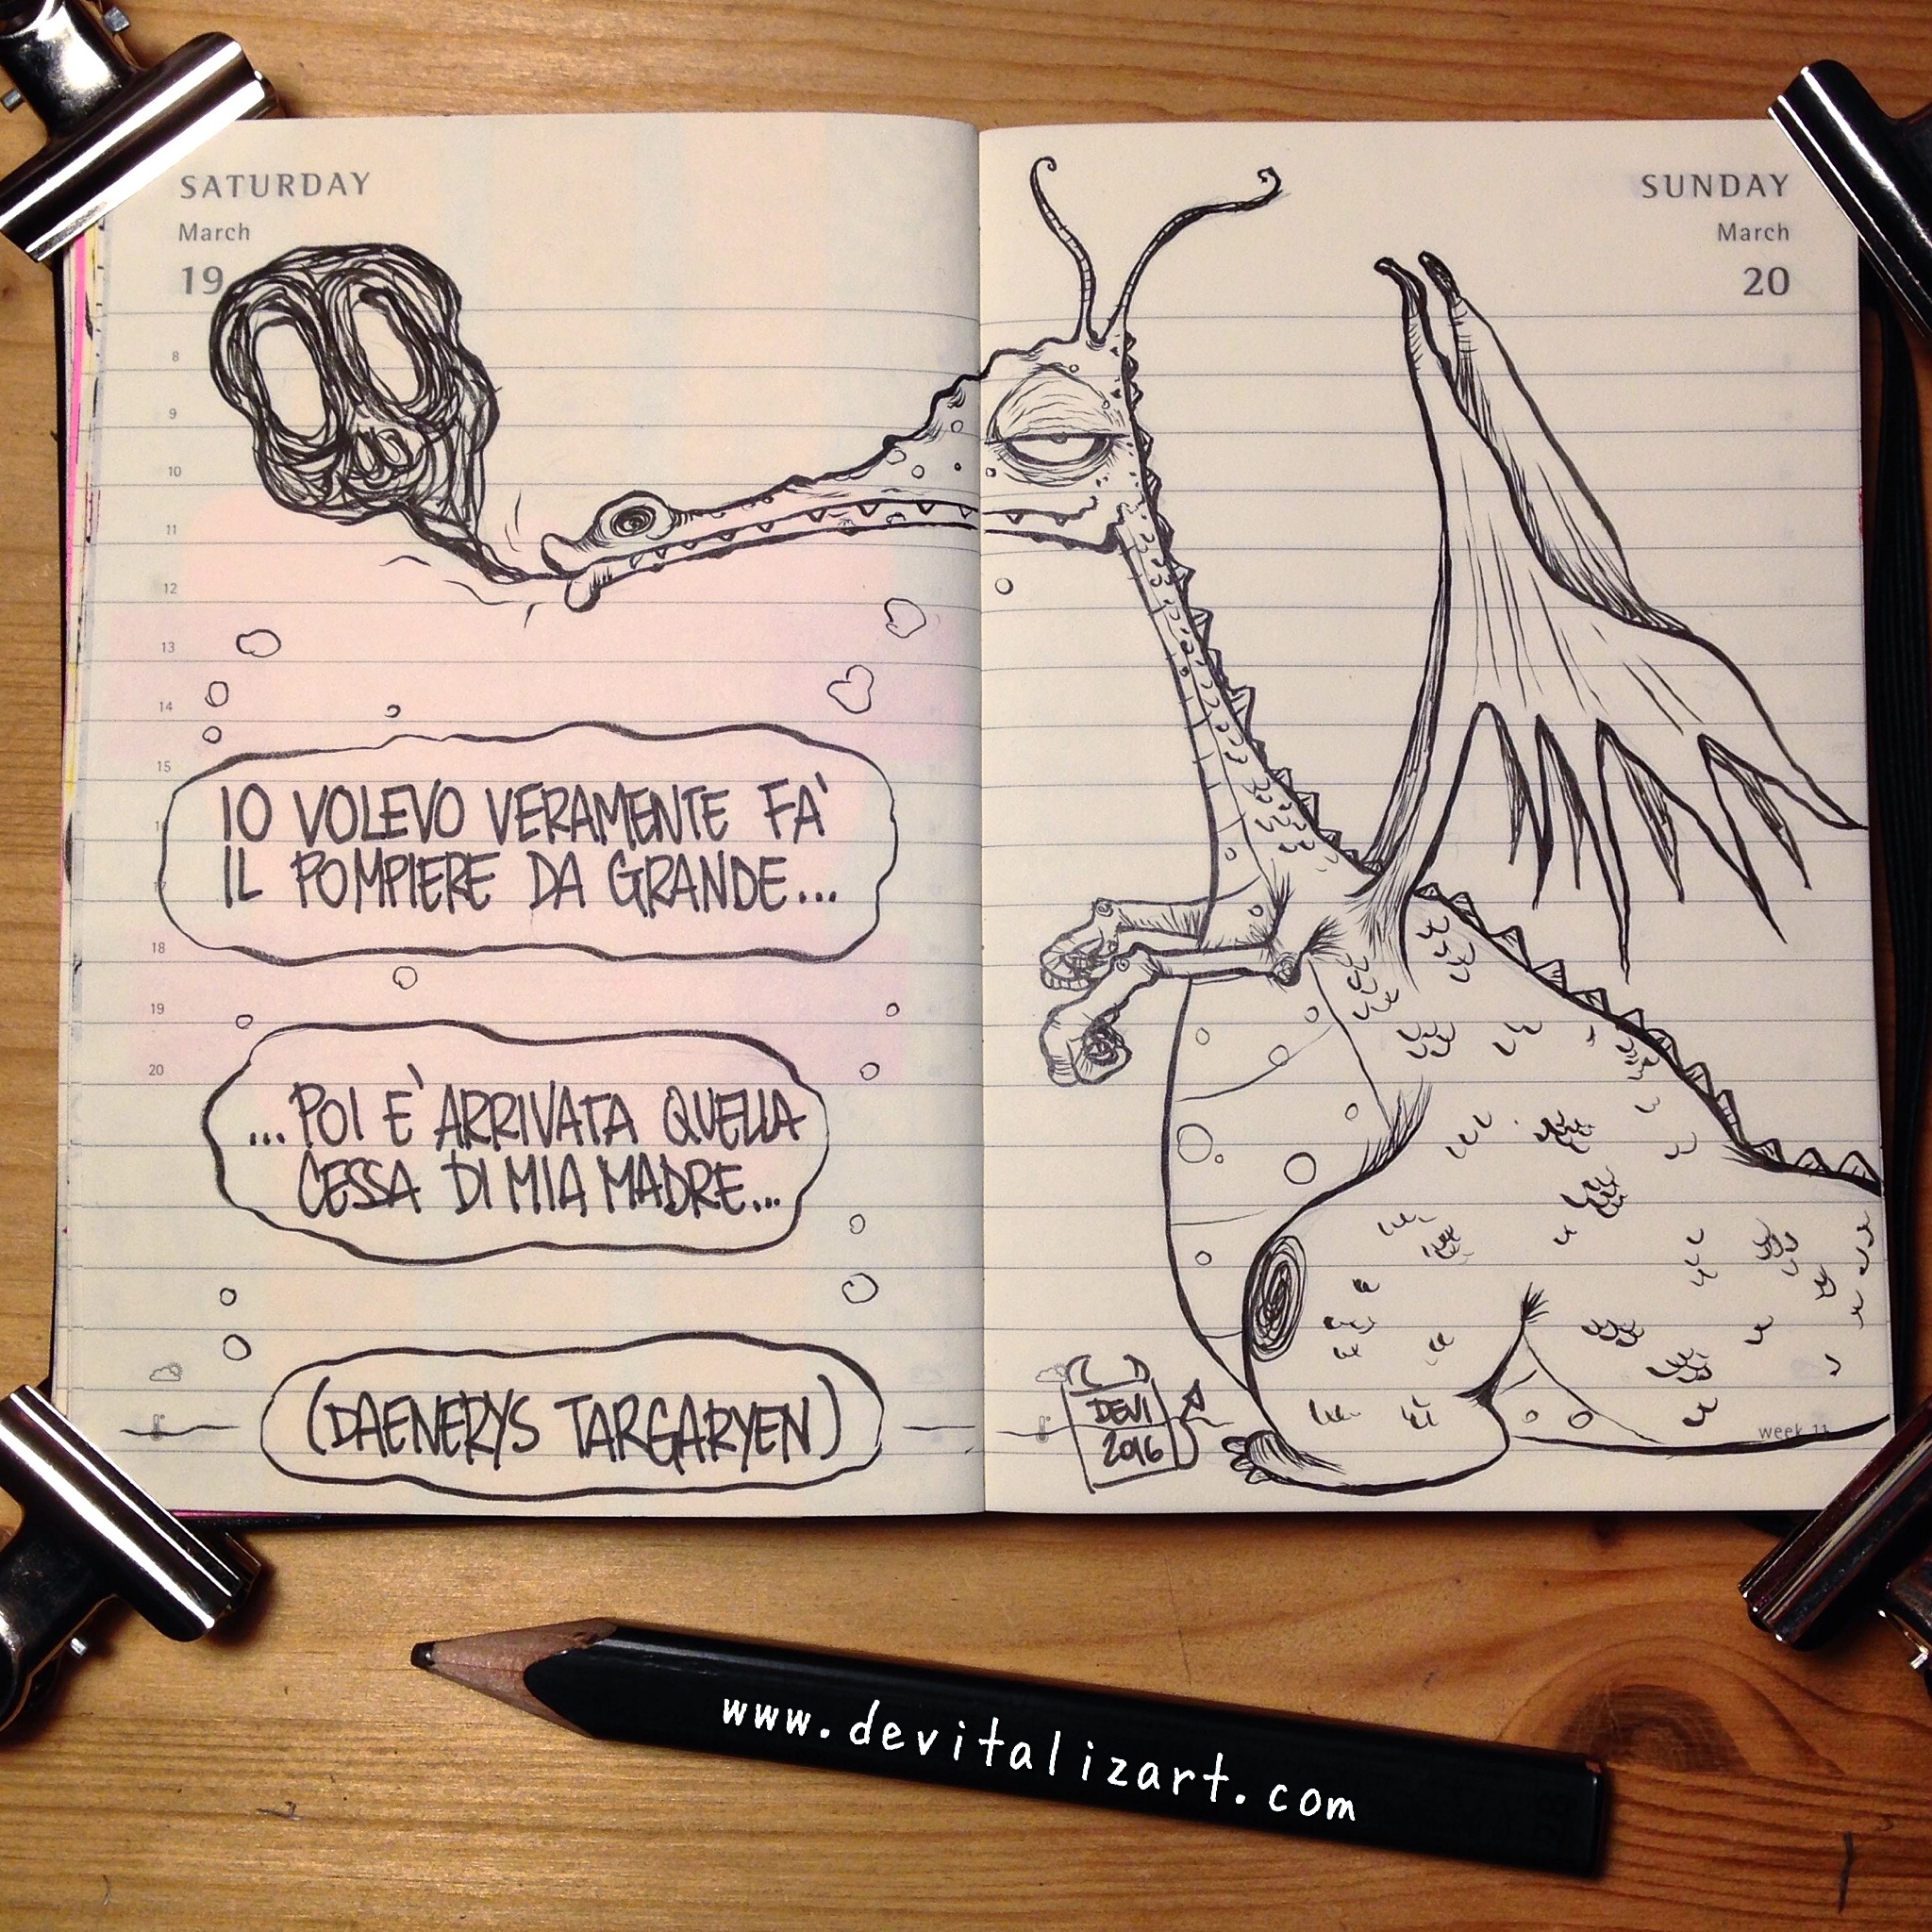 SATURDAY
March
19
SUNDAY
March
20
8
9
10
11
12
13
14
15
18
19
20
IO VOLEVO VERAMENTE FA'
IL POMPIERE DA GRANDE...
...POI E' ARRIVATA QUELLA
CESSA DI MIA MADRE...
(DAENERYS TARGARYEN)
DEVI
2016
week 11
www.devitalizart.com